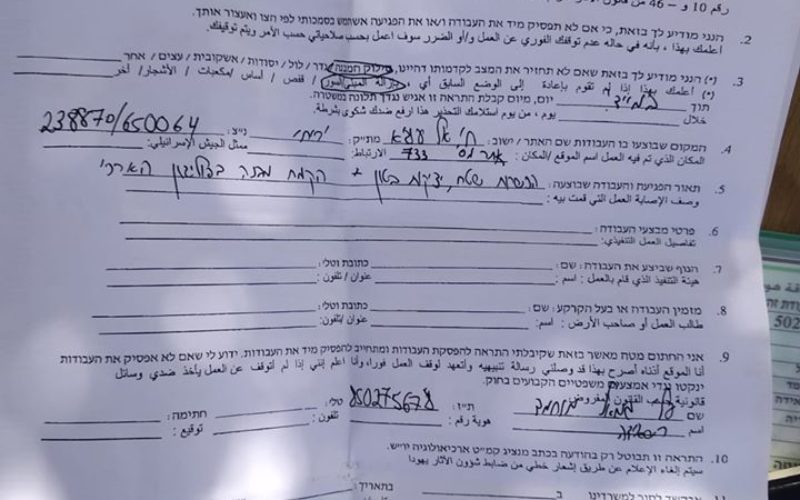 رقم 10 و – 46 من قانون
2. הנני מודיע לך בזאת, כי אם לא תפסיק מיד את העבודה ו/או את הפגיעה אשתמש בסמכותי לפי הצו ואעצור אותך.
اعلمك بهذا ، بأنه في حاله عدم توقفك الفوري عن العمل و/أو الضرر سوف اعمل بحسب صلاحياتي حسب الامر ويتم توقيفك.
3. (*) הנני מודיע לך בזאת שאם לא תחזיר את המצב לקדמותו דהיינו, סילוק המבנה/גדר / לול / יסודות / אשקובית / עצים / אחר
(*) أعلمك بهذا إذا لم تقوم بإعادة إلى الوضع السابق أي ، إزالة المبنى/السور / قفص / أساس /مكعبات / الأشجار/ آخر
תוך במייד יום, מיום קבלת התראה זו אגיש נגדך תלונה במשטרה.
خلال يوم ، من يوم استلامك التحذير هذا ارفع ضدك شكوى بشرطة.
4. המקום שבוצעו בו העבודות שם האתר / ישוב: מתי״ק: נ״צ: 238870/650064
المكان الذي تم فيه العمل اسم الموقع /المكان: 733 الارتباط: ممثل الجيش الإسرائيلي:
5. תאור הפגיעה והעבודה שבוצעה: הכשרת שטח, יציקת בטון + הקמת מבנה
وصف الإصابة العمل التي قمت بيه :
6. פרטי מבצעי העבודה:
تفاصيل العمل التنفيذي:
7. הגוף שביצע את העבודה: שם: כתובת וטלי:
هيئة التنفيذ الذي قام بالعمل : اسم: عنوان / تلفون :
8. מזמין העבודה או בעל הקרקע: שם: כתובת וטלי:
طالب العمل أو صاحب الأرض : اسم: عنوان /تلفون :
9. אני החתום מטה מאשר בזאת שקיבלתי התראה להפסקת העבודות ומתחייב להפסיק מיד את העבודות. ידוע לי שאם לא אפסיק את העבודות
أنا الموقع أدناه أصرح بهذا قد وصلني رسالة تنبيهيه وأتعهد لوقف العمل فورا،وأنا اعلم إنني إذا لم أتوقف عن العمل يأخذ ضدي وسائل
ינקטו נגדי אמצעים משפטיים הקבועים בחוק.
قانونية حسب القانون المفروض.
שם מוחמד ת״ז: 85027567 טלי: חתימה:
اسم هوية رقم : تلفون : توقيع :
10. התראה זו תבוטל רק בהודעה בכתב מנציג קמ״ט ארכיאולוגיה יו״ש.
سيتم إلغاء الإعلام عن طريق إشعار خطي من ضابط شؤون الآثار يهودا
11. לסור למשרדינו ב בתאריך: